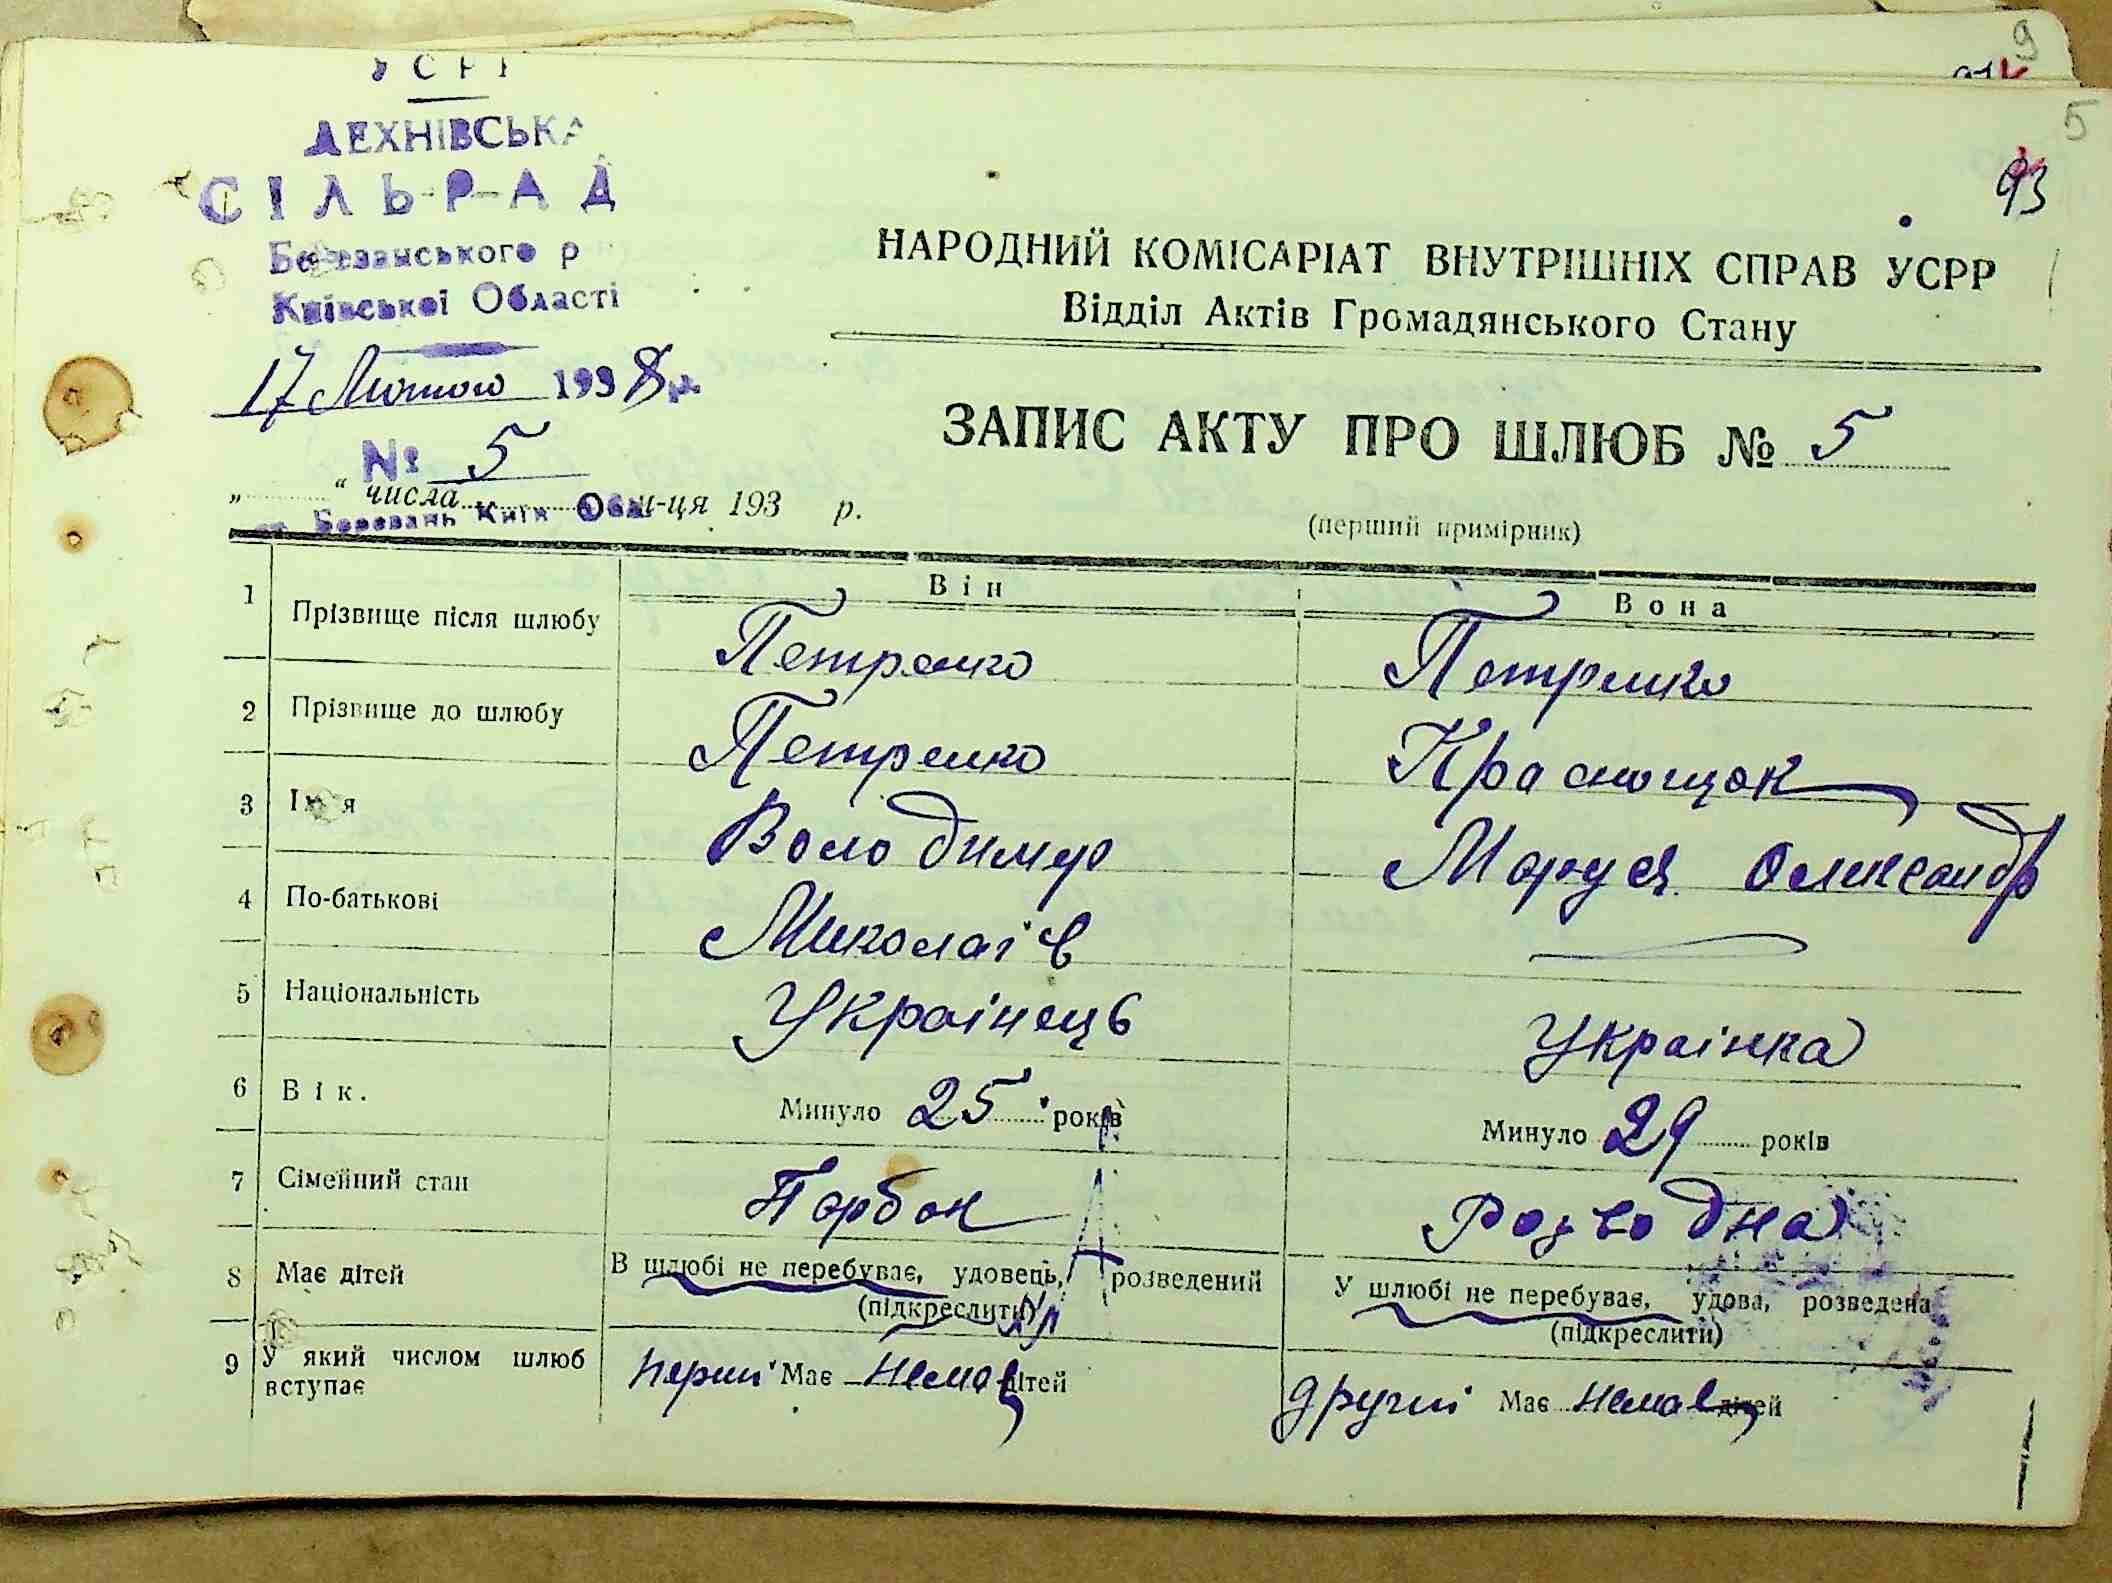 УСРР
ЛЕХНІВСЬКА
СІЛЬ-РАД
Березанського р
Київської Області
17 Лютого 1938 р.
№ 5
„ “ числа м-ця 193 р.
ст. Березань Київ Обл
9
5
93
НАРОДНИЙ КОМІСАРІАТ ВНУТРІШНІХ СПРАВ УСРР
Відділ Актів Громадянського Стану
ЗАПИС АКТУ ПРО ШЛЮБ № 5
(перший примірник)
Він Вона
1 Прізвище після шлюбу Петренко Петренко
2 Прізвище до шлюбу Петренко Краснощок
3 Ім'я Володимир Маруся Олександр
4 По-батькові Миколаїв —
5 Національність Українець Українка
6 Вік. Минуло 25 років Минуло 29 років
7 Сімейний стан Парбок Розводна
8 Має дітей В шлюбі не перебуває, удовець, розведений У шлюбі не перебуває, удова, розведена
(підкреслити) (підкреслити)
9 У який числом шлюб вступає перший Має немає дітей другий Має немає дітей